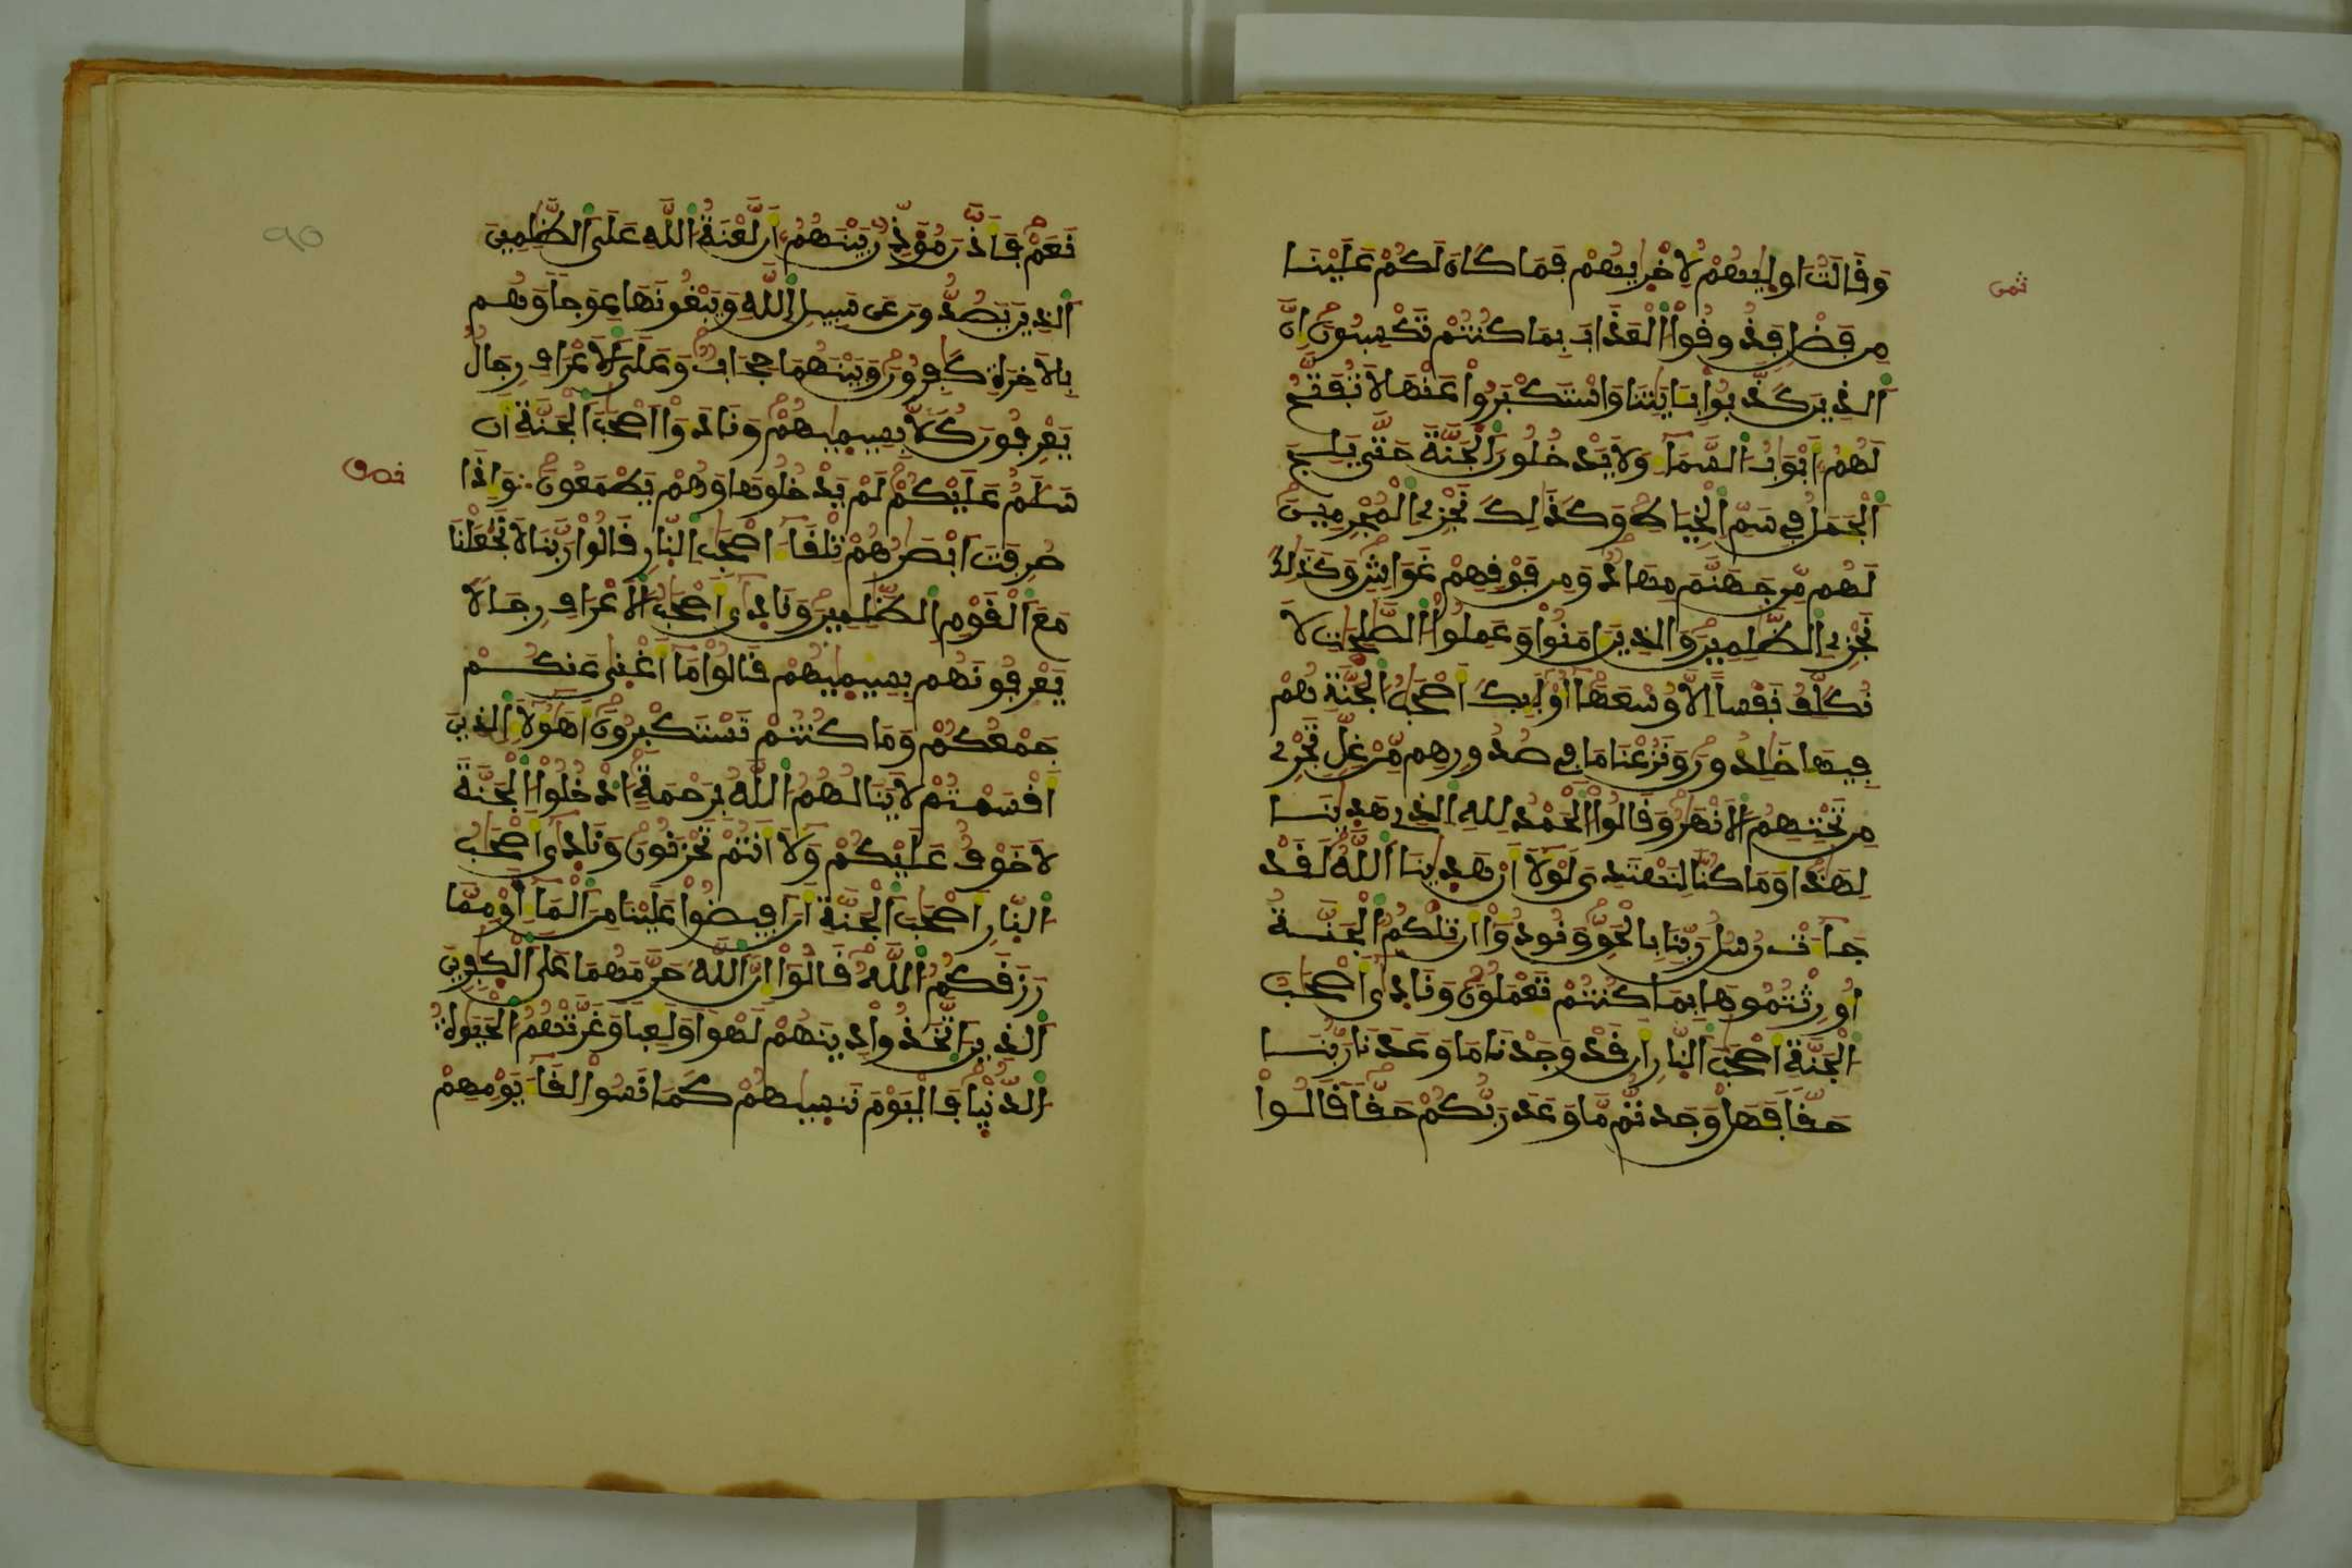 ثمن
وَقَالَتُ اولِيٰهُمْ لِأُخْرِيٰهُمْ فَمَا كَانَ لَكُمْ عَلَيْنَا
مِن فَضْلٖ فَذُوقُواْ الْعَذَابَ بِمَا كُنتُمْ تَكْسِبُونَ إِنَّ
اَلذِينَ كَذَّبُواْ بِـَٔايَٰتِنَا وَاسْتَكْبَرُواْ عَنْهَا لَا تُفَتَّحُ
لَهُمُۥٓ أَبْوَٰبُ السَّمَآءِ وَلَا يَدْخُلُونَ اَلْجَنَّةَ حَتَّىٰ يَلِجَ
اَلْجَمَلُ فِي سَمِّ اِلْخِيَاطِ وَكَذَٰلِكَ نَجْزِے اِلْمُجْرِمِينَ
لَهُم مِّن جَهَنَّمَ مِهَادٞ وَمِن فَوْقِهِمْ غَوَاشٖ وَكَذَٰلِكَ
نَجْزِے اِلظَّٰلِمِينَ وَالذِينَ ءَامَنُواْ وَعَمِلُواْ اُلصَّٰلِحَٰتِ لَا
نُكَلِّفُ نَفْساً اِلَّا وُسْعَهَآ أُوْلَٰٓئِكَ أَصْحَٰبُ اُلْجَنَّةِ هُمْ
فِيهَا خَٰلِدُونَ وَنَزَعْنَا مَا فِے صُدُورِهِم مِّنْ غِلّٖ تَجْرِے
مِن تَحْتِهِمُ اُلَانْهَٰرُ وَقَالُواْ اُلْحَمْدُ لِلهِ اِلذِے هَدِيٰنَا
لِهَٰذَا وَمَا كُنَّا لِنَهْتَدِيَ لَوْلَآ أَنْ هَدِيٰنَا اَللَّهُ لَقَدْ
جَآءَتْ رُسُلُ رَبِّنَا بِالْحَقِّ وَنُودُوٓاْ أَن تِلْكُمُ اُلْجَنَّةُ
أُورِثْتُمُوهَا بِمَا كُنتُمْ تَعْمَلُونَ وَنَادِىٰٓ أَصْحَٰبُ
اُلْجَنَّةِ أَصْحَٰبَ اَلنّارِ أَن قَدْ وَجَدْنَا مَا وَعَدَنَا رَبُّنَا
حَقّاٗ فَهَلْ وَجَدتُّم مَّا وَعَدَ رَبُّكُمْ حَقّاٗ قَالُواْ
٩٥
نَعَمْ فَأَذَّنَ مُؤَذِّنُۢ بَيْنَهُمُۥٓ أَن لَّعْنَةُ اُللَّهِ عَلَى اَلظَّٰلِمِينَ
اَلذِينَ يَصُدُّونَ عَن سَبِيلِ اِللَّهِ وَيَبْغُونَهَا عِوَجاٗ وَهُم
بِالَاخِرَةِ كَٰفِرُونَ وَبَيْنَهُمَا حِجَابٞ وَعَلَى اَلَاعْرَافِ رِجَالٞ
يَعْرِفُونَ كُلَّاۢ بِسِيمِيٰهُمْ وَنَادَوَاْ اَصْحَٰبَ اَلْجَنَّةِ أَن
نصف
سَلَٰمٌ عَلَيْكُمْ لَمْ يَدْخُلُوهَا وَهُمْ يَطْمَعُونَ وَإِذَا
صُرِفَتَ اَبْصَٰرُهُمْ تِلْقَآءَ اَصْحَٰبِ اِلنّارِ قَالُواْ رَبَّنَا لَا تَجْعَلْنَا
مَعَ اَلْقَوْمِ اِلظَّٰلِمِينَ وَنَادِىٰٓ أَصْحَٰبُ اُلَاعْرَافِ رِجَالاٗ
يَعْرِفُونَهُم بِسِيمِيٰهُمْ قَالُواْ مَآ أَغْنِىٰ عَنكُمْ
جَمْعُكُمْ وَمَا كُنتُمْ تَسْتَكْبِرُونَ أَهَٰٓؤُلَآءِ اِلذِينَ
أَقْسَمْتُمْ لَا يَنَالُهُمُ اُللَّهُ بِرَحْمَةٍ ادْخُلُواْ اُلْجَنَّةَ
لَا خَوْفٌ عَلَيْكُمْ وَلَآ أَنتُمْ تَحْزَنُونَ وَنَادِىٰٓ أَصْحَٰبُ
اُلنّارِ أَصْحَٰبَ اَلْجَنَّةِ أَنَ اَفِيضُواْ عَلَيْنَا مِنَ اَلْمَآءِ اَوْ مِمَّا
رَزَقَكُمُ اُللَّهُ قَالُوٓاْ إِنَّ اَللَّهَ حَرَّمَهُمَا عَلَى اَلْكٰفِرِينَ
اَلذِينَ اَتَّخَذُواْ دِينَهُمْ لَهْواٗ وَلَعِباٗ وَغَرَّتْهُمُ اُلْحَيَوٰةُ
اُلدُّنْيِا فَالْيَوْمَ نَنسِيٰهُمْ كَمَا نَسُواْ لِقَآءَ يَوْمِهِمْ